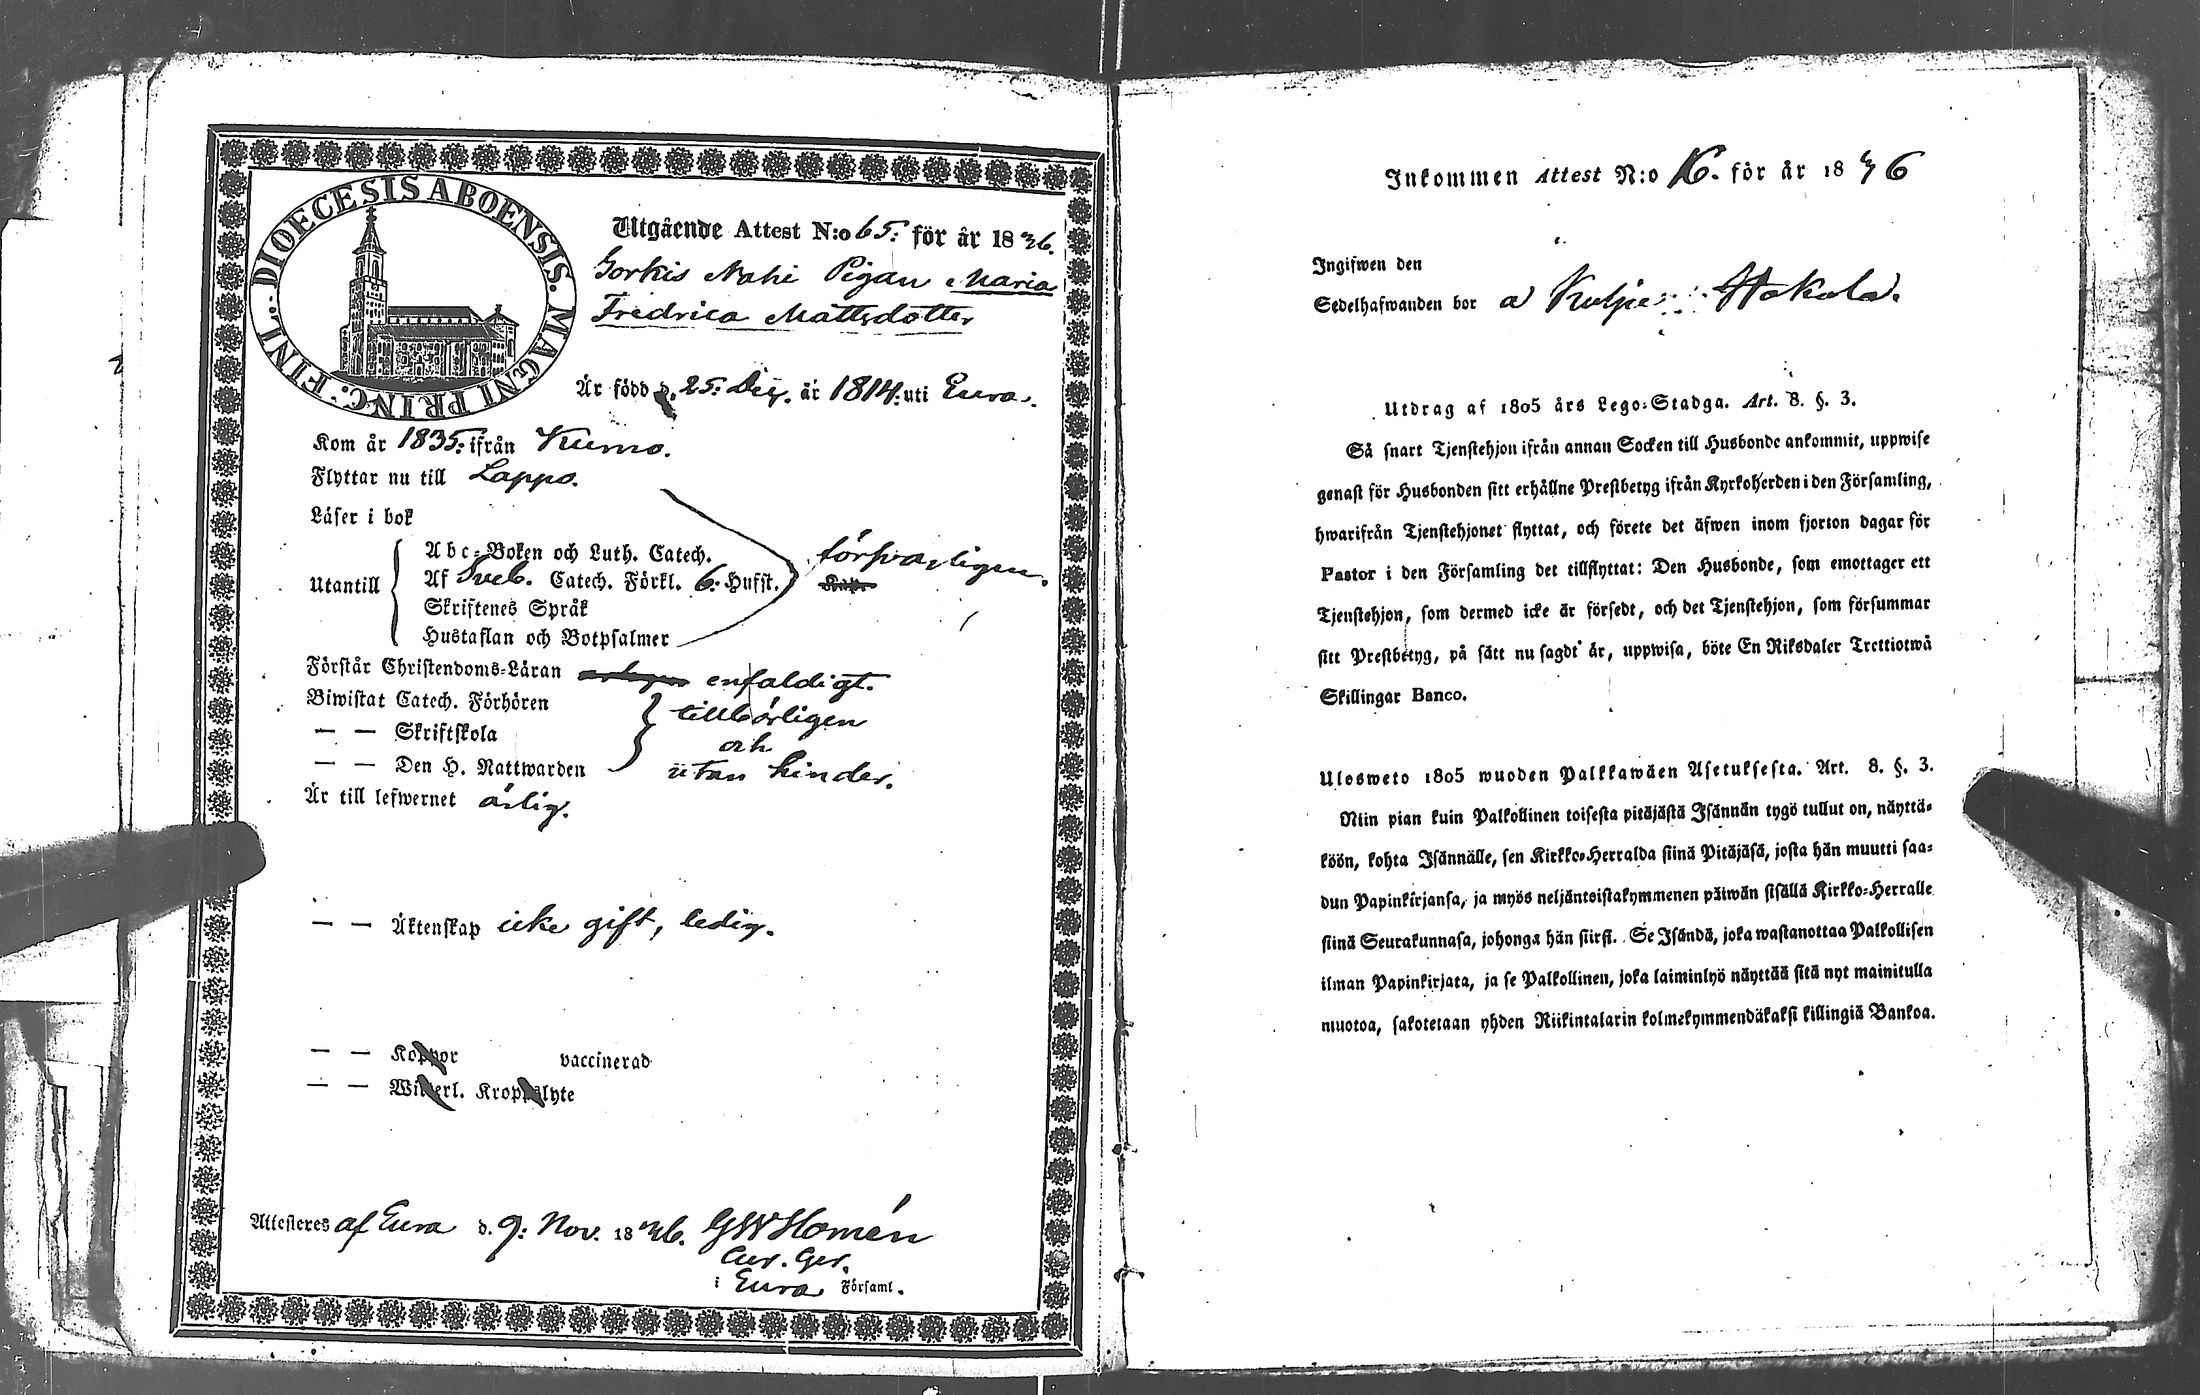 DIOECESIS ABOENSIS. MAGNI PRINC: FINL:
Utgående Attest N:o 65: för år 1836.
Gorkis Nahi Pigan Maria
Fredrica Mattsdotter
Är född d. 25: Dec. år 1814. uti Eura.
Kom år 1835: ifrån Kumo.
Flyttar nu till Lappo.
Läser i bok
försvarligen.
Utantill
Abc-Boken och Luth. Catech.
Af Sveb. Catech. Förkl. 6. Hufst.
Skriftenes Språk
Hustaflan och Botpsalmer
Förstår Christendoms-Läran enfaldigt.
Biwistat Catech. Förhören
— — Skriftskola
— — Den H. Nattwarden
tillbörligen
och
utan hinder.
Är till lefwernet ärlig.
— — Äktenskap icke gift, ledig.
— — Koppor vaccinerad
— — Witterl. Kroppslyte
Attesteres af Eura d. 9: Nov. 1836. GW Homén
Cur. Ger.
i Eura Församl.
Inkommen Attest N:o 16. för år 1836
Ingifwen den
Sedelhafwanden bor a
Utdrag af 1805 års Lego-Stadga. Art. 8. §. 3.
Så snart Tjenstehjon ifrån annan Socken till Husbonde ankommit, uppwise
genast för Husbonden sitt erhållne Prestbetyg ifrån Kyrkoherden i den Församling,
hwarifrån Tjenstehjonet flyttat, och förete det äfwen inom fjorton dagar för
Pastor i den Församling det tillflyttat: Den Husbonde, som emottager ett
Tjenstehjon, som dermed icke är försedt, och det Tjenstehjon, som försummar
sitt Prestbetyg, på sätt nu sagdt är, uppwisa, böte En Riksdaler Trettiotwå
Skillingar Banco.
Ulosweto 1805 wuoden Palkkawäen Asetuksesta. Art. 8. §. 3.
Niin pian kuin Palkollinen toisesta pitäjästä Isännän tygö tullut on, näyttä-
köön, kohta Isännälle, sen Kirkko-Herralda siinä Pitäjäsä, josta hän muutti saa-
dun Papinkirjansa, ja myös neljäntoistakymmenen päiwän sisällä Kirkko-Herralle
siinä Seurakunnasa, johonga hän siirsi. Se Isändä, joka wastanottaa Palkollisen
ilman Papinkirjata, ja se Palkollinen, joka laiminlyö näyttää sitä nyt mainitulla
muotoa, sakotetaan yhden Riikintalarin kolmekymmendäkaksi killingiä Bankoa.